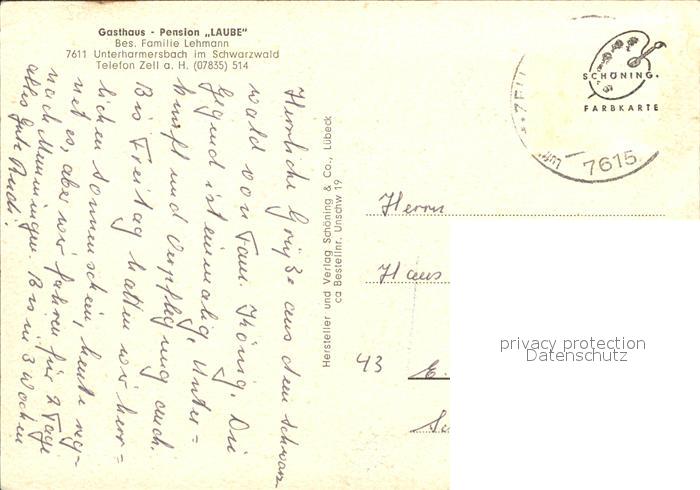 Gasthaus - Pension „LAUBE"
Bes. Familie Lehmann
7611 Unterharmersbach im Schwarzwald
Telefon Zell a. H. (07835) 514
Herrliche Grüße aus dem Schwarz-
wald von Fam. König. Die
Gegend ist einmalig, Unter=
kunft und Verpflegung auch.
Bis Freitag hatten wir herr=
lichen Sonnenschein, heute reg-
net es, aber wir fahren für 2 Tage
nach Memmingen. Bis in 3 Wochen
alles Gute Rudi!
Hersteller und Verlag Schöning & Co., Lübeck
ca Bestellnr. Unschw 19
SCHÖNING
FARBKARTE
7615
Herrn
Hans
43
privacy protection
Datenschutz